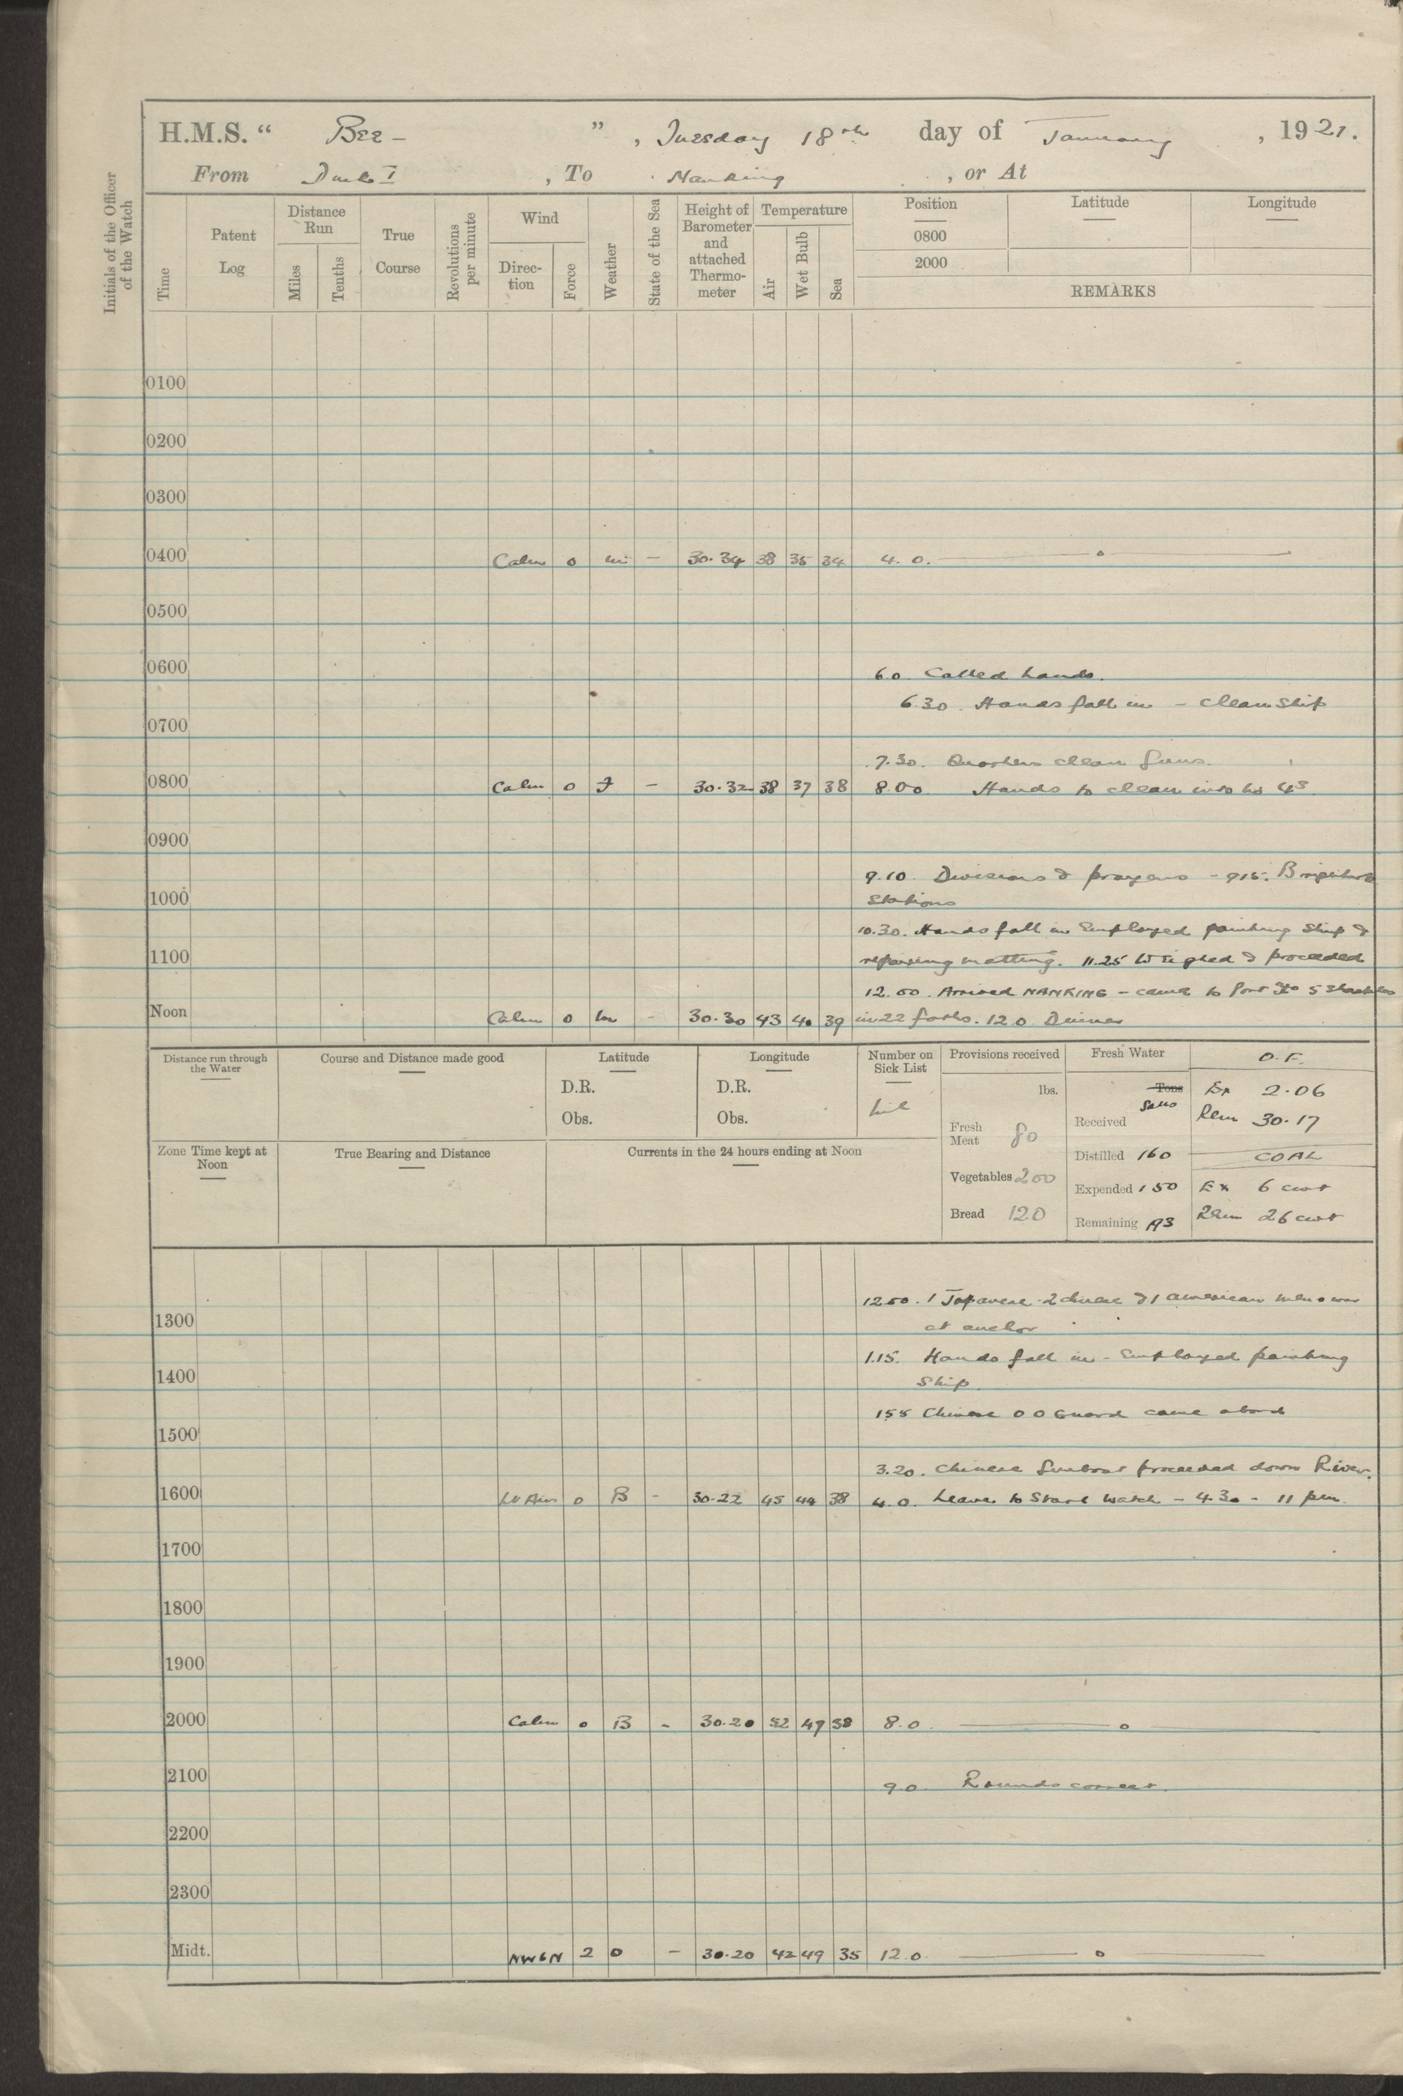 H.M.S. “ Bee - ” , Tuesday 18th day of January , 1921.
From Duck I , To Nanking , or At
Initials of the Officer of the Watch
Time
Patent Log
Distance Run
Miles
Tenths
True Course
Revolutions per minute
Wind
Direc-tion
Force
Weather
State of the Sea
Height of Barometer and attached Thermo-meter
Temperature
Air
Wet Bulb
Sea
Position
0800
2000
Latitude
Longitude
REMARKS
0100
0200
0300
0400 Calm 0 m - 30.34 38 35 34 4. 0.
0500
0600 6.0 Called hands.
6.30. Hands fall in - clean ship
0700
7.30. Quarters clean guns.
0800 Calm 0 f - 30.32 38 37 38 8.00 Hands to clean into
0900
9.10. Divisions & prayers - 915.
1000 Stations
10.30. Hands fall in Employed painting Ship &
1100 repairing matting. 11.25 Weighed & proceeded
12.00. Arrived NANKING - came to Port 5 Shackles
Noon Calm 0 m - 30.30 43 40 39 in 22 faths. 12.0 Dinner
Distance run through the Water
Course and Distance made good
Latitude
D.R.
Obs.
Longitude
D.R.
Obs.
Number on Sick List
nil
Provisions received
lbs.
Fresh Meat 80
Vegetables 200
Bread 120
Fresh Water
Tons
Galls
Received
Distilled 160
Expended 150
Remaining 193
O.F.
Ex 2.06
Rem 30.17
COAL
Ex 6 cwt
Rem 26 cwt
Zone Time kept at Noon
True Bearing and Distance
Currents in the 24 hours ending at Noon
1250. 1 Japanese 2 chinese & 1 american men o war
1300 at anchor
1.15. Hands fall in - Employed painting
1400 Ship
155 Chinese O O Guard came abord
1500
3.20. Chinese Gunboat proceeded down River.
1600 0 B - 30.22 45 44 38 4.0. Leave to Starb watch - 4.30 - 11 pm.
1700
1800
1900
2000 Calm 0 B - 30.20 52 49 38 8.0
2100 9.0 Rounds correct.
2200
2300
Midt. NW6N 2 0 - 30.20 42 49 35 12.0